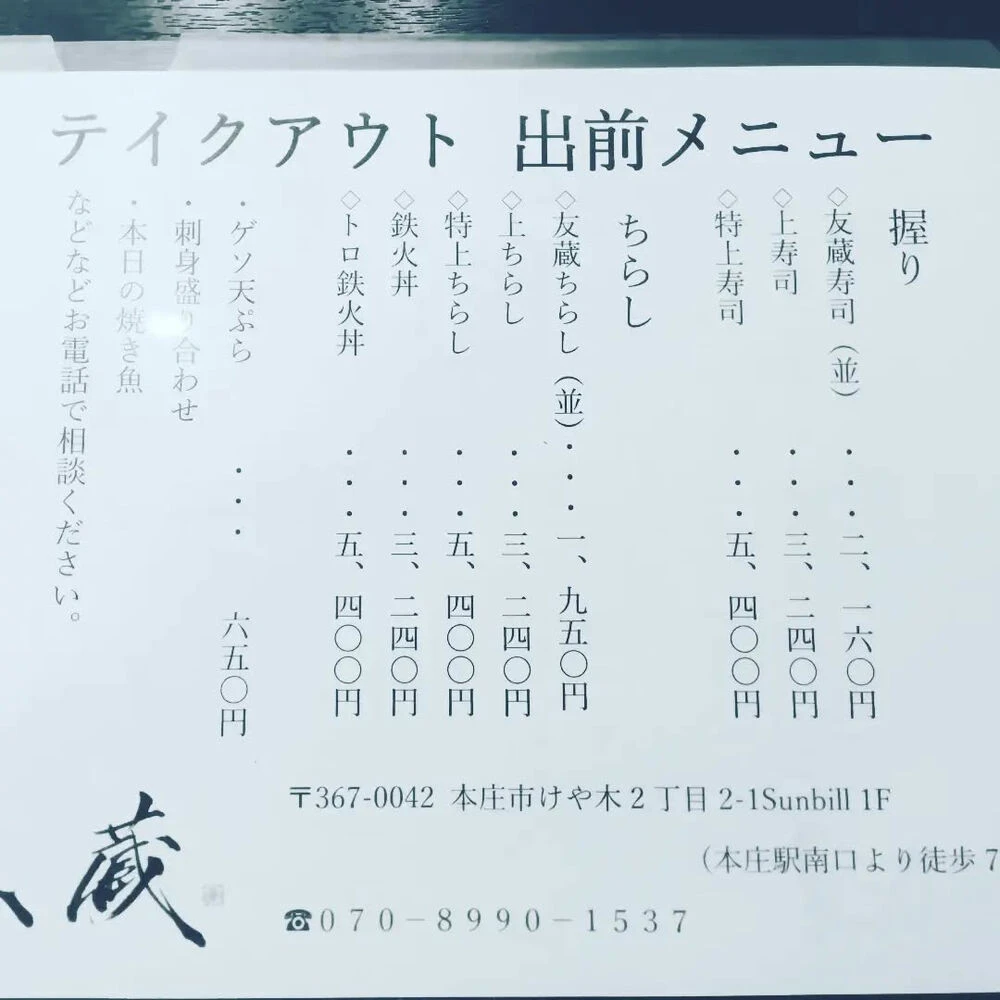 テイクアウト 出前メニュー
握り
◇友蔵寿司（並）・・・二、一六〇円
◇上寿司・・・三、二四〇円
◇特上寿司・・・五、四〇〇円
ちらし
◇友蔵ちらし（並）・・・一、九五〇円
◇上ちらし・・・三、二四〇円
◇特上ちらし・・・五、四〇〇円
◇鉄火丼・・・三、二四〇円
◇トロ鉄火丼・・・五、四〇〇円
・ゲソ天ぷら・・・六五〇円
・刺身盛り合わせ
・本日の焼き魚
などなどお電話で相談ください。
〒367-0042 本庄市けや木2丁目2-1Sunbill 1F
（本庄駅南口より徒歩7
☎070－8990－1537
蔵